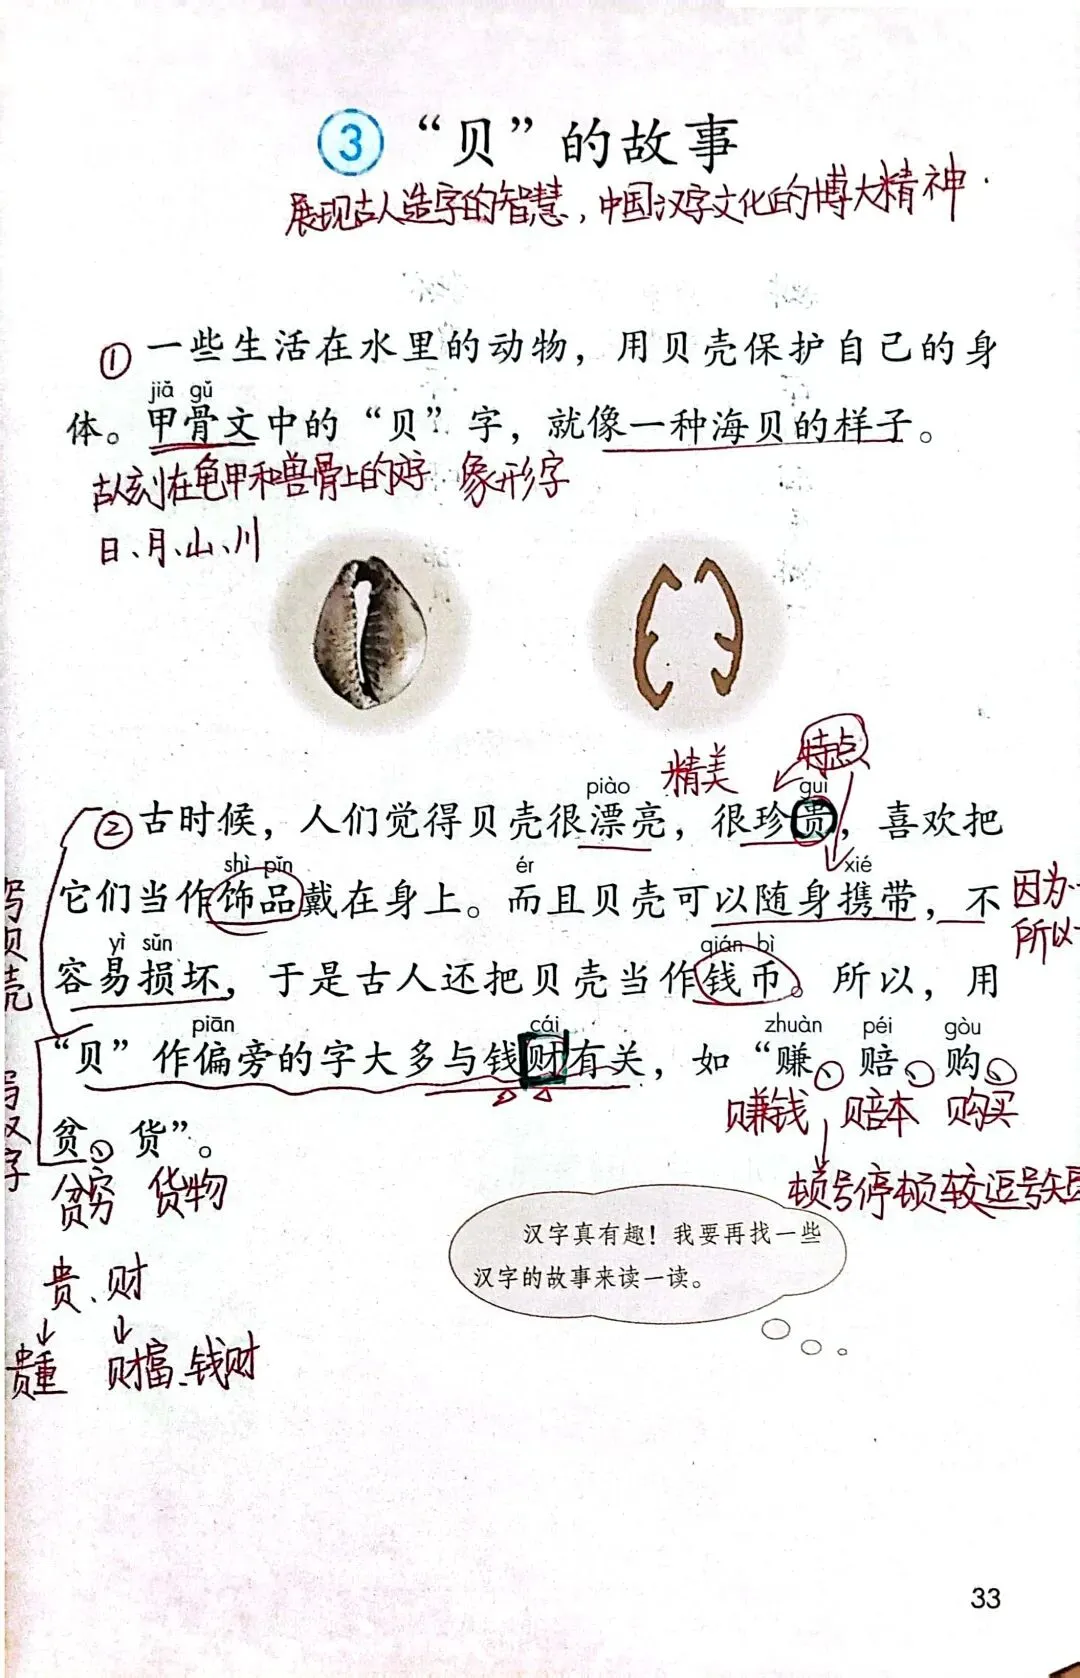 3 “贝”的故事
展现古人造字的智慧，中国汉字文化的博大精神.
① 一些生活在水里的动物，用贝壳保护自己的身
jiǎ gǔ
体。甲骨文中的“贝”字，就像一种海贝的样子。
古人刻在龟甲和兽骨上的文字 象形字
日、月、山、川
精美 特点
piào guì
② 古时候，人们觉得贝壳很漂亮，很珍贵，喜欢把
shì pǐn ér xié
它们当作饰品戴在身上。而且贝壳可以随身携带，不
因为…
所以…
yì sǔn qián bì
容易损坏，于是古人还把贝壳当作钱币。所以，用
写贝壳
piān cái zhuàn péi gòu
“贝”作偏旁的字大多与钱财有关，如“赚、赔、购、
赚钱 赔本 购买
贫、货”。
写汉字
贫穷 货物
顿号停顿较逗号短
汉字真有趣！我要再找一些
汉字的故事来读一读。
贵、财
贵重 财富、钱财
33